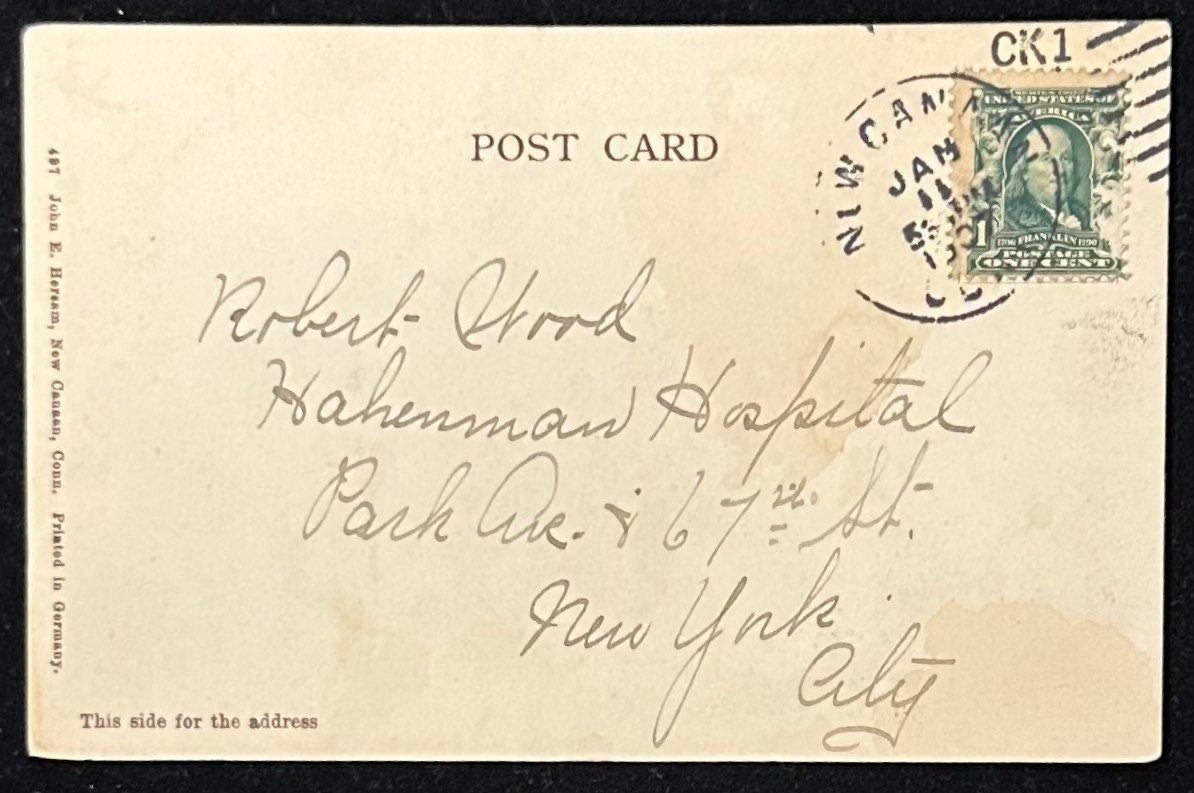 CK1
NEW CANAAN
JAN
11
5
1907
SERIES 1902
UNITED STATES OF
AMERICA
1
1706 FRANKLIN 1790
POSTAGE
ONE CENT
POST CARD
Robert Wood
Hahenman Hospital
Park Ave. & 67th St.
New York
City
497 John E. Hersam, New Canaan, Conn. Printed in Germany.
This side for the address